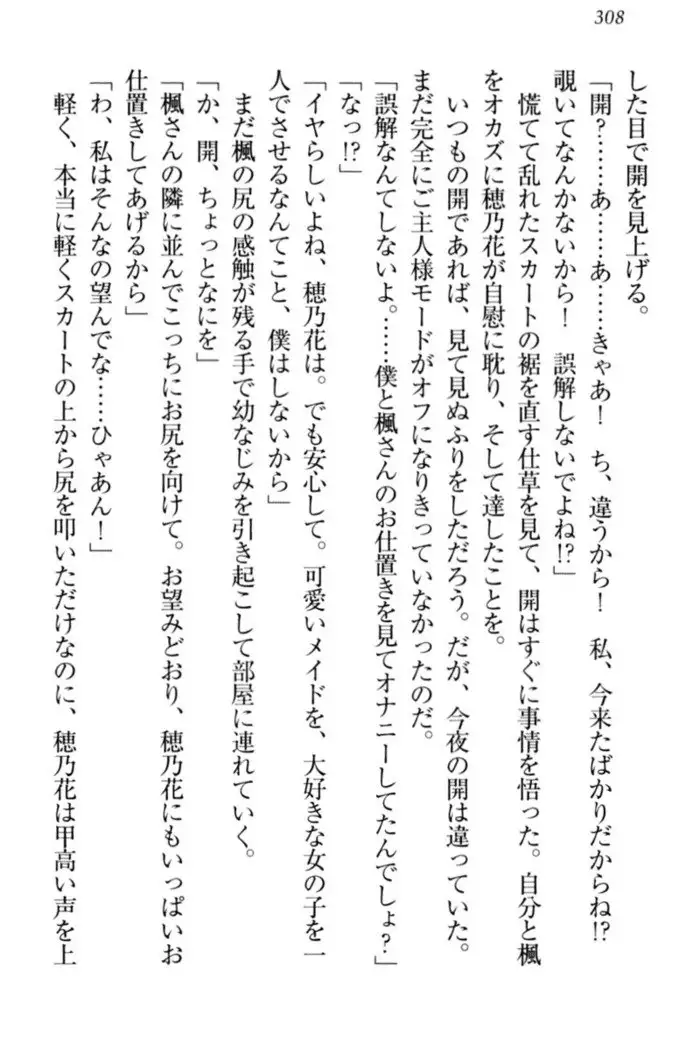 308
した目で開を見上げる。
「開?……あ……あ……きゃあ! ち、違うから! 私、今来たばかりだからね!?
覗いてなんかないから! 誤解しないでよね!?」
慌てて乱れたスカートの裾を直す仕草を見て、開はすぐに事情を悟った。自分と楓
をオカズに穂乃花が自慰に耽り、そして達したことを。
いつもの開であれば、見て見ぬふりをしただろう。だが、今夜の開は違っていた。
まだ完全にご主人様モードがオフになりきっていなかったのだ。
「誤解なんてしないよ。……僕と楓さんのお仕置きを見てオナニーしてたんでしょ?」
「なっ!?」
「イヤらしいよね、穂乃花は。でも安心して。可愛いメイドを、大好きな女の子を一
人でさせるなんてこと、僕はしないから」
まだ楓の尻の感触が残る手で幼なじみを引き起こして部屋に連れていく。
「か、開、ちょっとなにを」
「楓さんの隣に並んでこっちにお尻を向けて。お望みどおり、穂乃花にもいっぱいお
仕置きしてあげるから」
「わ、私はそんなの望んでな……ひゃあん!」
軽く、本当に軽くスカートの上から尻を叩いただけなのに、穂乃花は甲高い声を上